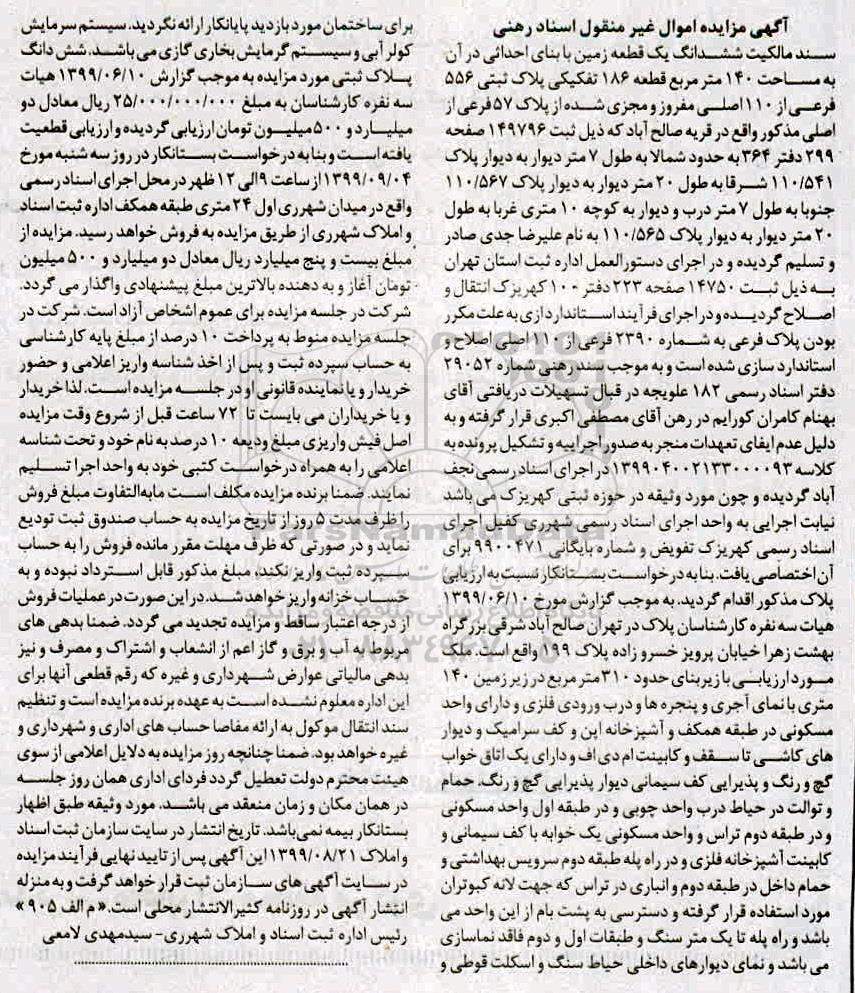 آگهی مزایده اموال غیر منقول اسناد رهنی
سند مالکیت ششدانگ یک قطعه زمین با بنای احداثی در آن
به مساحت ۱۴۰ متر مربع قطعه ۱۸۶ تفکیکی پلاک ثبتی ۵۵۶
فرعی از ۱۱۰ اصلی مفروز و مجزی شده از پلاک ۵۷ فرعی از
اصلی مذکور واقع در قریه صالح آباد که ذیل ثبت ۱۴۹۷۹۶ صفحه
۲۹۹ دفتر ۳۶۴ به حدود شمالا به طول ۷ متر دیوار به دیوار پلاک
۱۱۰/۵۴۱ شرقا به طول ۲۰ متر دیوار به دیوار پلاک ۱۱۰/۵۶۷
جنوبا به طول ۷ متر درب و دیوار به کوچه ۱۰ متری غربا به طول
۲۰ متر دیوار به دیوار پلاک ۱۱۰/۵۶۵ به نام علیرضا جدی صادر
و تسلیم گردیده و در اجرای دستورالعمل اداره ثبت استان تهران
به ذیل ثبت ۱۴۷۵۰ صفحه ۲۲۳ دفتر ۱۰۰ کهریزک انتقال و
اصلاح گردیده و در اجرای فرآیند استانداردازی به علت مکرر
بودن پلاک فرعی به شماره ۲۳۹۰ فرعی از ۱۱۰ اصلی اصلاح و
استاندارد سازی شده است و به موجب سند رهنی شماره ۲۹۰۵۲
دفتر اسناد رسمی ۱۸۲ علویجه در قبال تسهیلات دریافتی آقای
بهنام کامران کورایم در رهن آقای مصطفی اکبری قرار گرفته و به
دلیل عدم ایفای تعهدات منجر به صدور اجراییه و تشکیل پرونده به
کلاسه ۱۳۹۹۰۴۰۰۲۱۳۳۰۰۰۰۹۳ در اجرای اسناد رسمی نجف
آباد گردیده و چون مورد وثیقه در حوزه ثبتی کهریزک می باشد
نیابت اجرایی به واحد اجرای اسناد رسمی شهرری کفیل اجرای
اسناد رسمی کهریزک تفویض و شماره بایگانی ۹۹۰۰۴۷۱ برای
آن اختصاصی یافت. بنا به درخواست بستانکار نسبت به ارزیابی
پلاک مذکور اقدام گردید. به موجب گزارش مورخ ۱۳۹۹/۰۶/۱۰
هیات سه نفره کارشناسان پلاک در تهران صالح آباد شرقی بزرگراه
بهشت زهرا خیابان پرویز خسرو زاده پلاک ۱۹۹ واقع است. ملک
مورد ارزیابی با زیربنای حدود ۳۱۰ متر مربع در زیر زمین ۱۴۰
متری با نمای آجری و پنجره ها و درب ورودی فلزی و دارای واحد
مسکونی در طبقه همکف و آشپزخانه اپن و کف سرامیک و دیوار
های کاشی تا سقف و کابینت ام دی اف و دارای یک اتاق خواب
گچ و رنگ و پذیرایی کف سیمانی دیوار پذیرایی گچ و رنگ، حمام
و توالت در حیاط درب واحد چوبی و در طبقه اول واحد مسکونی
و در طبقه دوم تراس و واحد مسکونی یک خوابه با کف سیمانی و
کابینت آشپزخانه فلزی و در راه پله طبقه دوم سرویس بهداشتی و
حمام داخل در طبقه دوم و انباری در تراس که جهت لانه کبوتران
مورد استفاده قرار گرفته و دسترسی به پشت بام از این واحد می
باشد و راه پله تا یک متر سنگ و طبقات اول و دوم فاقد نماسازی
می باشد و نمای دیوارهای داخلی حیاط سنگ و اسکلت قوطی و
برای ساختمان مورد بازدید پایانکار ارائه نگردید. سیستم سرمایش
کولر آبی و سیستم گرمایش بخاری گازی می باشد. شش دانگ
پلاک ثبتی مورد مزایده به موجب گزارش ۱۳۹۹/۰۶/۱۰ هیات
سه نفره کارشناسان به مبلغ ۲۵/۰۰۰/۰۰۰/۰۰۰ ریال معادل دو
میلیارد و ۵۰۰ میلیون تومان ارزیابی گردیده و ارزیابی قطعیت
یافته است و بنا به درخواست بستانکار در روز سه شنبه مورخ
۱۳۹۹/۰۹/۰۴ از ساعت ۹ الی ۱۲ ظهر در محل اجرای اسناد رسمی
واقع در میدان شهرری اول ۲۴ متری طبقه همکف اداره ثبت اسناد
و املاک شهرری از طریق مزایده به فروش خواهد رسید. مزایده از
مبلغ بیست و پنج میلیارد ریال معادل دو میلیارد و ۵۰۰ میلیون
تومان آغاز و به دهنده بالاترین مبلغ پیشنهادی واگذار می گردد.
شرکت در جلسه مزایده برای عموم اشخاص آزاد است. شرکت در
جلسه مزایده منوط به پرداخت ۱۰ درصد از مبلغ پایه کارشناسی
به حساب سپرده ثبت و پس از اخذ شناسه واریز اعلامی و حضور
خریدار و یا نماینده قانونی او در جلسه مزایده است. لذا خریدار
و یا خریداران می بایست تا ۷۲ ساعت قبل از شروع وقت مزایده
اصل فیش واریزی مبلغ ودیعه ۱۰ درصد به نام خود و تحت شناسه
اعلامی را به همراه درخواست کتبی خود به واحد اجرا تسلیم
نمایند. ضمنا برنده مزایده مکلف است مابه‌التفاوت مبلغ فروش
را ظرف مدت ۵ روز از تاریخ مزایده به حساب صندوق ثبت تودیع
نماید و در صورتی که ظرف مهلت مقرر مانده فروش را به حساب
سپرده ثبت واریز نکند، مبلغ مذکور قابل استرداد نبوده و به
حساب خزانه واریز خواهد شد. در این صورت در عملیات فروش
از درجه اعتبار ساقط و مزایده تجدید می گردد. ضمنا بدهی های
مربوط به آب و برق و گاز اعم از انشعاب و اشتراک و مصرف و نیز
بدهی مالیاتی عوارض شهرداری و غیره که رقم قطعی آنها برای
این اداره معلوم نشده است به عهده برنده مزایده است و تنظیم
سند انتقال موکول به ارائه مفاصا حساب های اداری و شهرداری و
غیره خواهد بود. ضمنا چنانچه روز مزایده به دلایل اعلامی از سوی
هیئت محترم دولت تعطیل گردد فردای اداری همان روز جلسه
در همان مکان و زمان منعقد می باشد. مورد وثیقه طبق اظهار
بستانکار بیمه نمی‌باشد. تاریخ انتشار در سایت سازمان ثبت اسناد
و املاک ۱۳۹۹/۰۸/۲۱ این آگهی پس از تایید نهایی فرآیند مزایده
در سایت آگهی های سازمان ثبت قرار خواهد گرفت و به منزله
انتشار آگهی در روزنامه کثیرالانتشار محلی است. «م الف ۹۰۵»
رئیس اداره ثبت اسناد و املاک شهرری- سیدمهدی لامعی